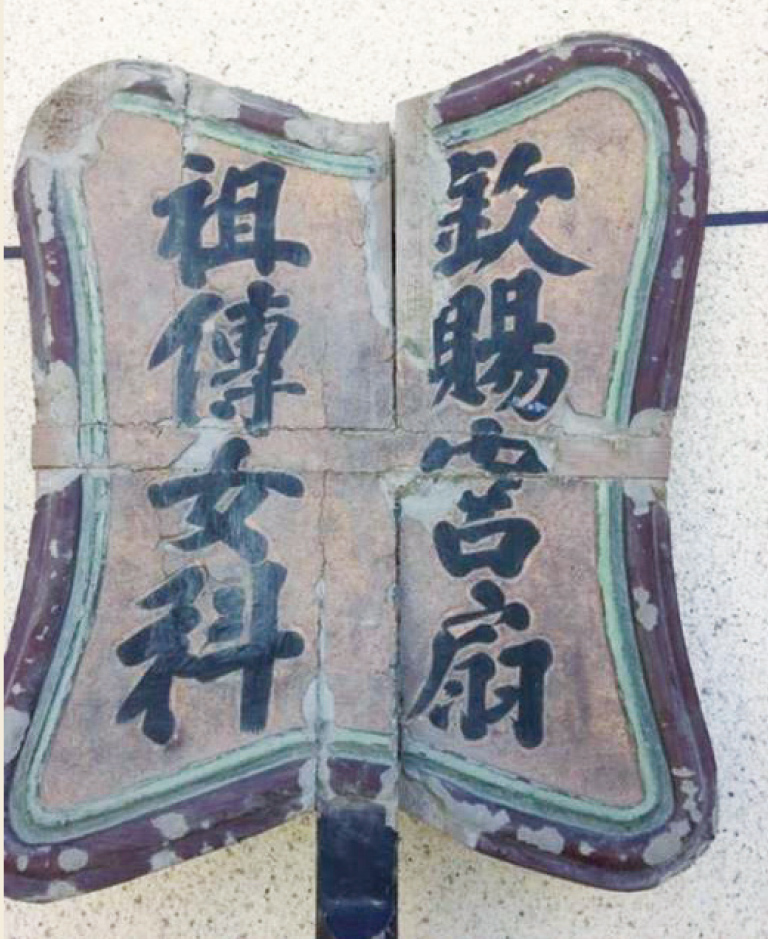 欽賜宮扇
祖傳女科